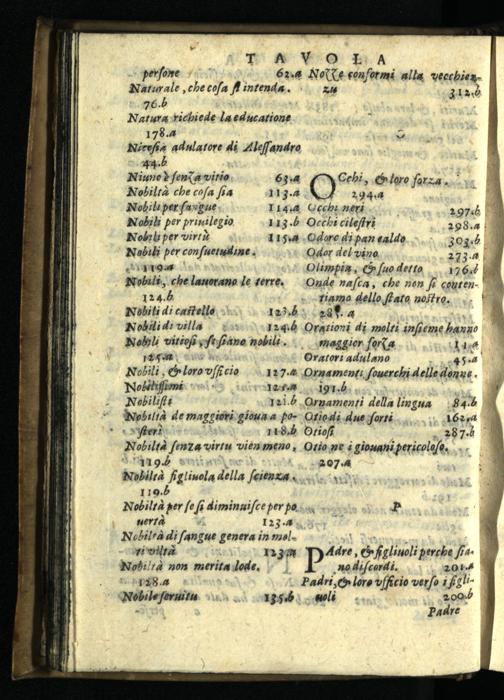 TAVOLA
persone 62.a
Naturale, che cosa si intenda.
76.b
Natura richiede la educatione
178.a
Nicesia adulatore di Alessandro
44.b
Niuno è senza vitio 63.a
Nobiltà che cosa sia 113.a
Nobili per sangue 114.a
Nobili per priuilegio 113.b
Nobili per virtù 115.a
Nobili per consuetudine.
119.a
Nobili, che lauorano le terre.
124.b
Nobili di castello 123.b
Nobili di villa 124.b
Nobili vitiosi, se siano nobili.
125.a
Nobili, & loro vfficio 127.a
Nobilissimi 121.a
Nobilisti 121.b
Nobiltà de maggiori gioua a po-
steri 118.b
Nobiltà senza virtu vien meno.
119.b
Nobiltà figliuola della scienza.
119.b
Nobiltà per se si diminuisce per po
uertà 123.a
Nobiltà di sangue genera in mol-
ti viltà 123.a
Nobiltà non merita lode.
128.a
Nobile seruitu 135.b
Nozze conformi alla vecchiez-
za 312.b
O
OCchi, & loro forza.
294.a
Occhi neri 297.b
Occhi cilestri 298.a
Odore di pan caldo 303.b
Odor del vino 273.a
Olimpia, & suo detto 176.b
Onde nasca, che non si conten-
tiamo dello stato nostro.
285.a
Orationi di molti insieme hanno
maggior forza 11.a
Oratori adulano 45.a
Ornamenti souerchi delle donne.
191.b
Ornamenti della lingua 84.b
Otio di due sorti 162.a
Otiosi 287.b
Otio ne i giouani pericoloso.
207.a
P
PAdre, & figliuoli perche sia-
no discordi. 201.a
Padri, & loro vfficio verso i figli-
uoli 200.b
Padre